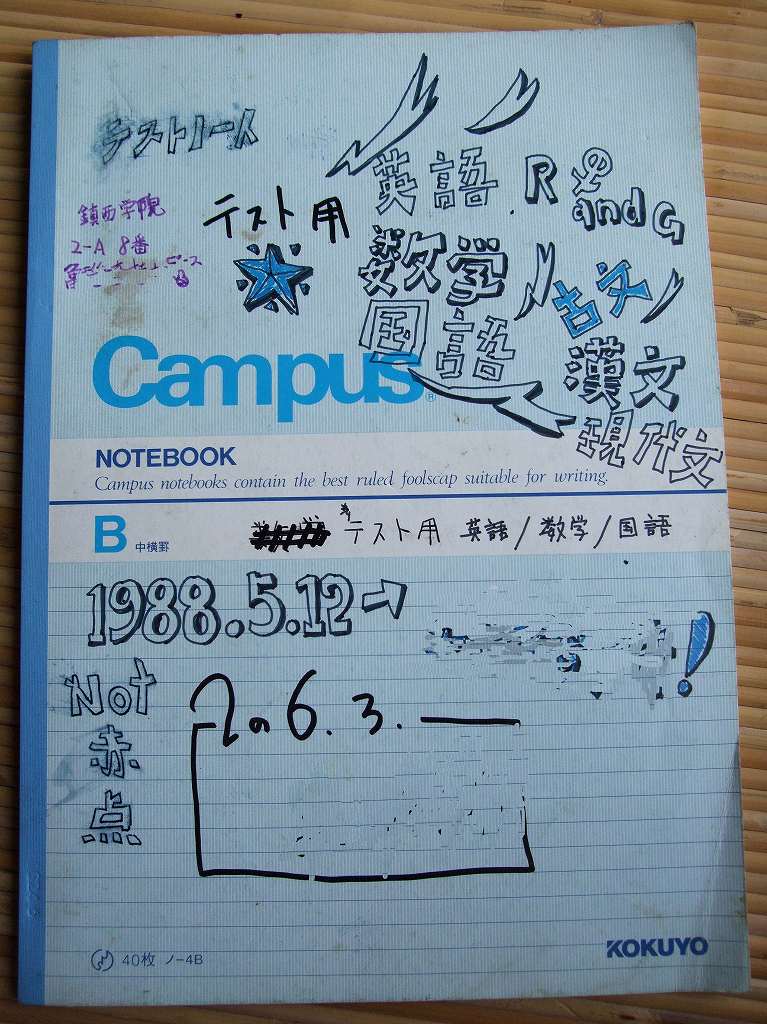 テストノート
鎮西学院
2-A 8番
テスト用
英語.R & G
and
数学
古文
国語
漢文
現代文
Campus®
NOTEBOOK
Campus notebooks contain the best ruled foolscap suitable for writing.
B 中横罫
テスト用 英語/数学/国語
1988.5.12→
!
Not
赤
点
2の6.3.
40枚 ノ-4B
KOKUYO